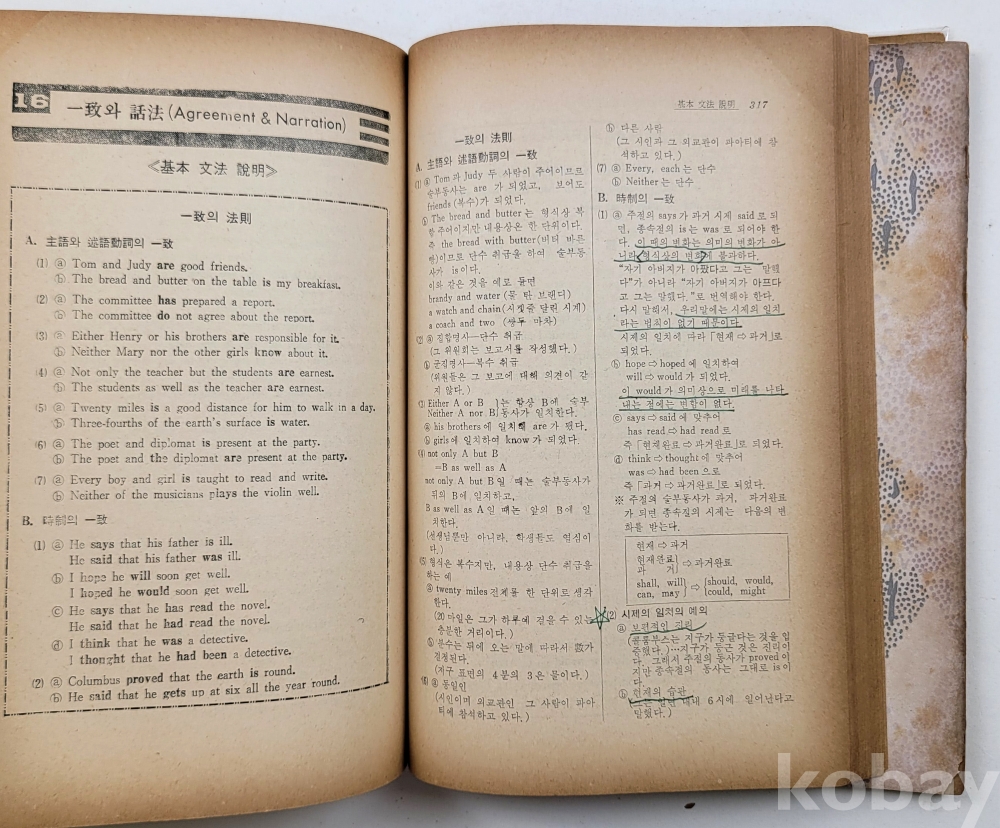 16
一致와 話法 (Agreement & Narration)
≪基本 文法 說明≫
一致의 法則
A. 主語와 述語動詞의 一致
(1) ⓐ Tom and Judy are good friends.
ⓑ The bread and butter on the table is my breakfast.
(2) ⓐ The committee has prepared a report.
ⓑ The committee do not agree about the report.
(3) ⓐ Either Henry or his brothers are responsible for it.
ⓑ Neither Mary nor the other girls know about it.
(4) ⓐ Not only the teacher but the students are earnest.
ⓑ The students as well as the teacher are earnest.
(5) ⓐ Twenty miles is a good distance for him to walk in a day.
ⓑ Three-fourths of the earth's surface is water.
(6) ⓐ The poet and diplomat is present at the party.
ⓑ The poet and the diplomat are present at the party.
(7) ⓐ Every boy and girl is taught to read and write.
ⓑ Neither of the musicians plays the violin well.
B. 時制의 一致
(1) ⓐ He says that his father is ill.
He said that his father was ill.
ⓑ I hope he will soon get well.
I hoped he would soon get well.
ⓒ He says that he has read the novel.
He said that he had read the novel.
ⓓ I think that he was a detective.
I thought that he had been a detective.
(2) ⓐ Columbus proved that the earth is round.
ⓑ He said that he gets up at six all the year round.
基本 文法 說明 317
一致의 法則
A. 主語와 述語動詞의 一致
(1) ⓐ Tom과 Judy 두 사람이 주어이므로
술부동사는 are 가 되었고, 보어도
friends (복수)가 되었다.
ⓑ The bread and butter는 형식상 복
합주어이지만 내용상은 한 단위이다.
즉 the bread with butter(버터 바른
빵)이므로 단수 취급을 하여 술부동
사가 is이다.
이와 같은 것을 예로 들면
brandy and water (물 탄 브랜디)
a watch and chain (시곗줄 달린 시계)
a coach and two (쌍두 마차)
(2) ⓐ 집합명사—단수 취급
(그 위원회는 보고서를 작성했다.)
ⓑ 군집명사—복수 취급
(위원들은 그 보고에 대해 의견이 같
지 않다.)
(3) Either A or B ]는 항상 B에 술부
Neither A nor B]동사가 일치한다.
ⓐ his brothers에 일치해 are가 됐다.
ⓑ girls에 일치하여 know가 되었다.
(4) not only A but B
=B as well as A
not only A but B일 때는 술부동사가
뒤의 B에 일치하고,
B as well as A일 때는 앞의 B에 일
치한다.
(선생님뿐만 아니라, 학생들도 열심이
다.)
(5) 형식은 복수지만, 내용상 단수 취급을
하는 예
ⓐ twenty miles 전체를 한 단위로 생각
한다.
(20 마일은 그가 하루에 걸을 수 있는
충분한 거리이다.)
ⓑ 분수는 뒤에 오는 말에 따라서 數가
결정된다.
(지구 표면의 4분의 3은 물이다.)
(6) ⓐ 동일인
(시인이며 외교관인 그 사람이 파아
티에 참석하고 있다.)
ⓑ 다른 사람
(그 시인과 그 외교관이 파아티에 참
석하고 있다.)
(7) ⓐ Every, each는 단수
ⓑ Neither는 단수
B. 時制의 一致
(1) ⓐ 주절의 says가 과거 시제 said로 되
면, 종속절의 is는 was로 되어야 한
다. 이 때의 변화는 의미의 변화가 아
니라 형식상의 변화에 불과하다.
“자기 아버지가 아팠다고 그는 말했
다”가 아니라 “자기 아버지가 아프다
고 그는 말했다.”로 번역해야 한다.
다시 말해서, 우리말에는 시제의 일치
라는 법칙이 없기 때문이다.
시제의 일치에 따라 「현재⇨과거」로
되었다.
ⓑ hope⇨hoped에 일치하여
will⇨would가 되었다.
이 would가 의미상으로 미래를 나타
내는 점에는 변함이 없다.
ⓒ says⇨said에 맞추어
has read⇨had read로
즉 「현재완료⇨과거완료」로 되었다.
ⓓ think⇨thought에 맞추어
was⇨had been으로
즉 「과거⇨과거완료」로 되었다.
※ 주절의 술부동사가 과거, 과거완료
가 되면 종속절의 시제는 다음의 변
화를 받는다.
현재⇨과거
현재완료)
과 거 )⇨과거완료
shall, will) ⇨ (should, would,
can, may ) (could, might
(2) 시제의 일치의 예외
ⓐ 보편적인 진리
(콜룸부스는 지구가 둥글다는 것을 입
증했다.)…지구가 둥근 것은 진리이
다. 그래서 주절의 동사가 proved이
지만 종속절의 동사는 그대로 is이
다.
ⓑ 현재의 습관
일년 내내 6시에 일어난다고
말했다.)
kobay